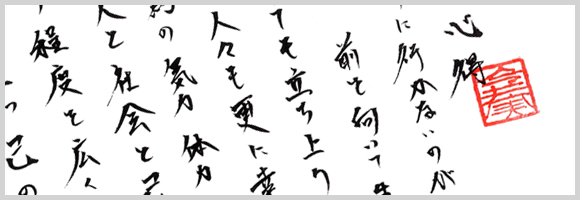 心得
に行かないのが
前を向いて
ても立ち上り
人々も更に幸
の気力 体力
人と社会と
程度を広く
己の